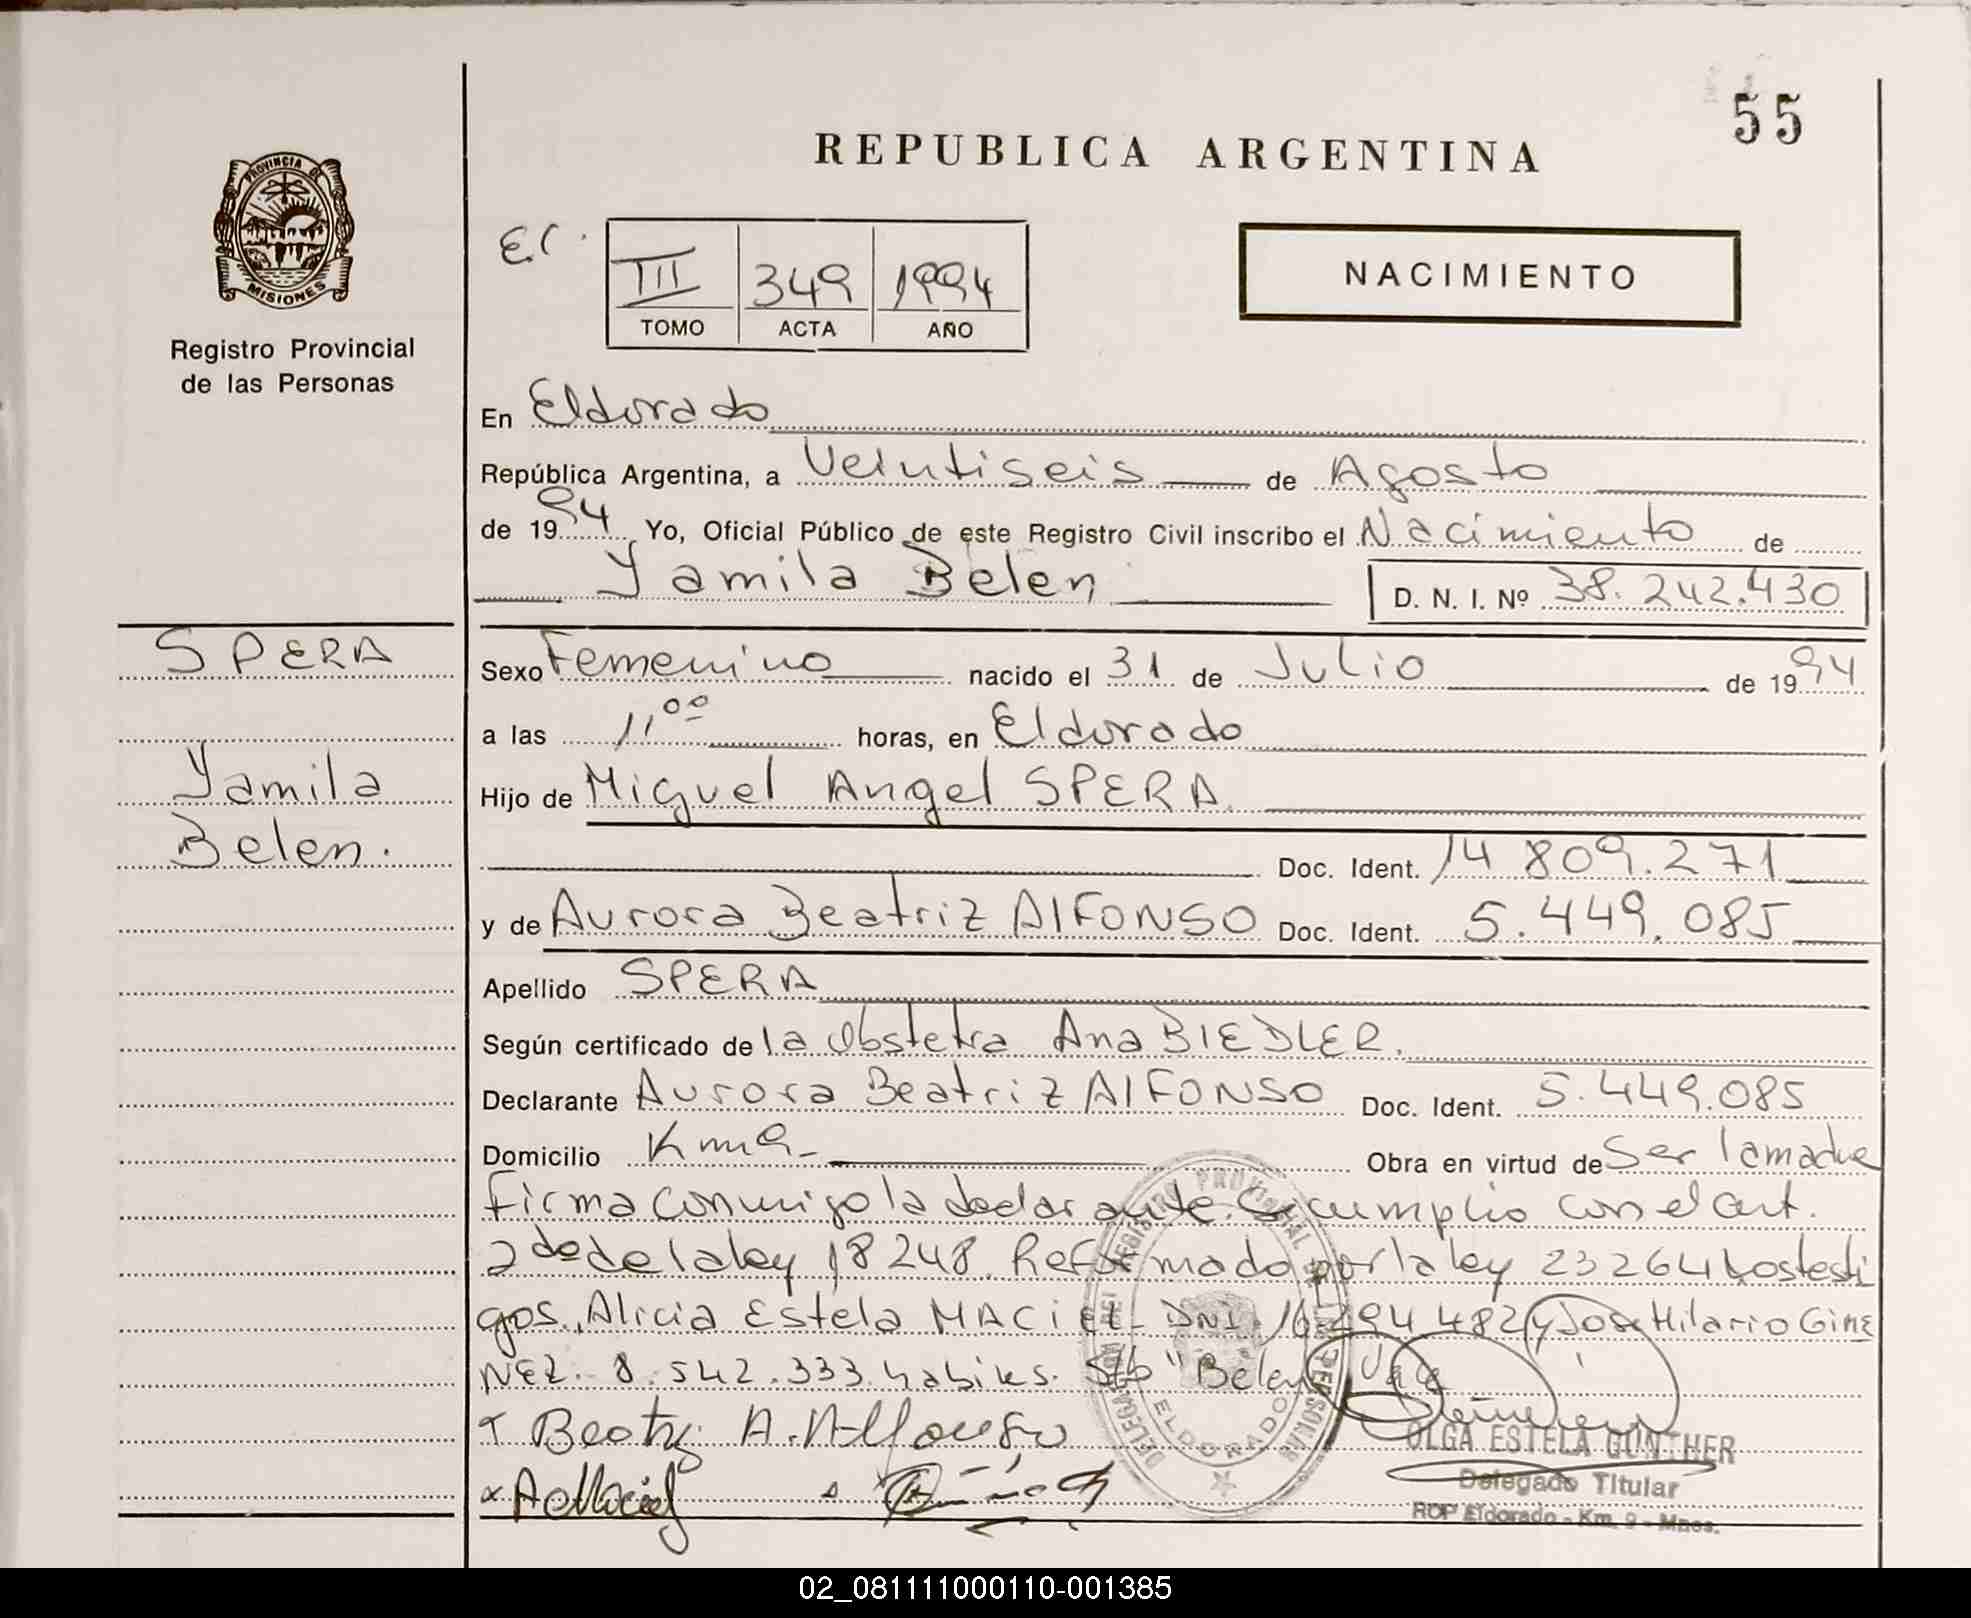 55
REPUBLICA ARGENTINA
PROVINCIA DE
MISIONES
Registro Provincial
de las Personas
III 349 1994
TOMO ACTA AÑO
NACIMIENTO
En Eldorado
República Argentina, a Veintiseis de Agosto
de 1994 Yo, Oficial Público de este Registro Civil inscribo el Nacimiento de
Yamila Belen D. N. I. Nº 38.242.430
SPERA
Yamila
Belen.
Sexo Femenino nacido el 31 de Julio de 1994
a las 11,00 horas, en Eldorado
Hijo de Miguel Angel SPERA.
Doc. Ident. 14 809.271
y de Aurora Beatriz AlFONSO Doc. Ident. 5.449.085
Apellido SPERA
Según certificado de la Obstetra Ana BIEDLER.
Declarante Aurora Beatriz AlFONSO Doc. Ident. 5.449.085
Domicilio Km 9- Obra en virtud de Ser la madre
firma conmigo la declarante. Se cumplio con el art.
2do de la ley 18248. Reformado por la ley 23264 Los testi
gos. Alicia Estela MACiEL DNI. 16294482 y Jose Hilario Gime
NEZ. 8.542.333. "Belen
Beatriz A. Alfonso
ELDORADO
OLGA ESTELA GUNTHER
Delegado Titular
RDP Eldorado - Km. 9 - Mnes.
02_081111000110-001385